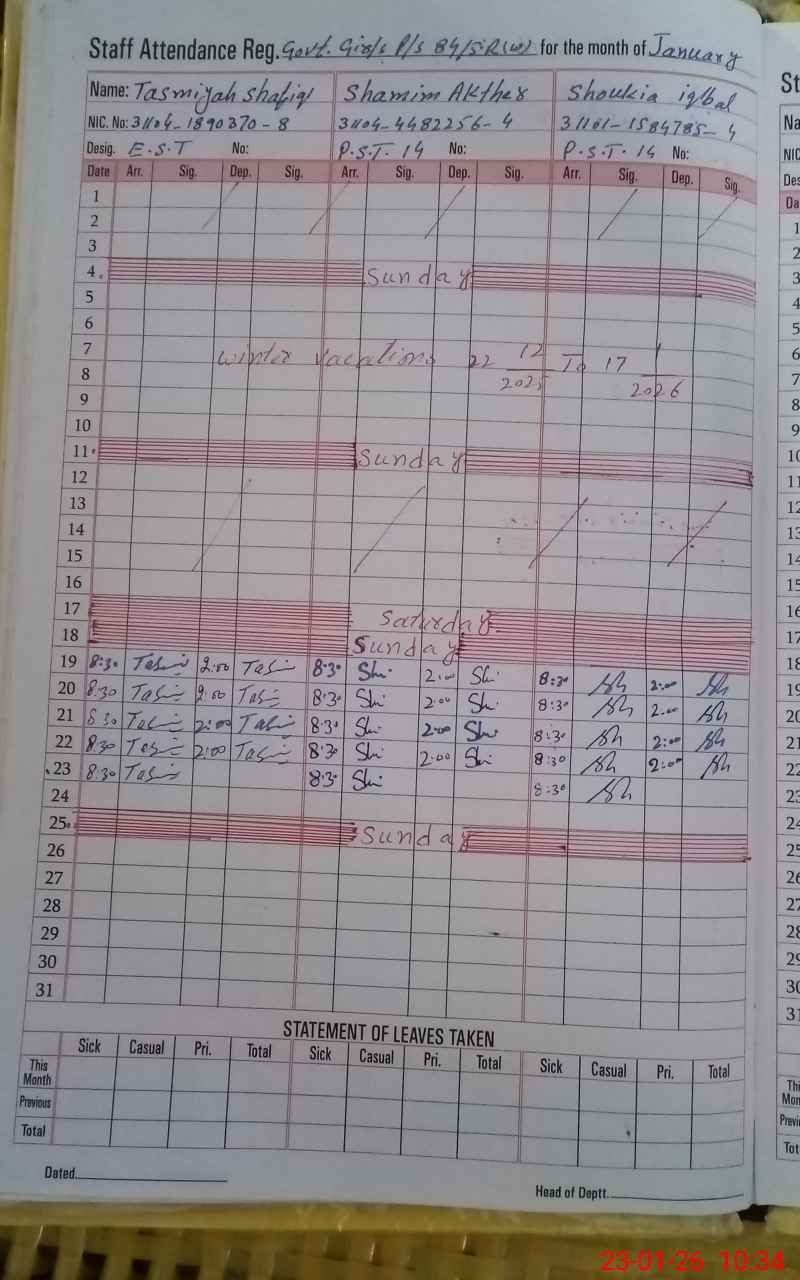 Staff Attendance Reg. Govt. Girls P/s 84/5.R(w) for the month of January
Name: Tasmiyah Shafiq Shamim Akther Shoukia iqbal
NIC. No: 31104-1890370-8 31104-4482256-4 31101-1584785-4
Desig. E.S.T No: P.S.T. 14 No: P.S.T. 14 No:
Date Arr. Sig. Dep. Sig. Arr. Sig. Dep. Sig. Arr. Sig. Dep. Sig.
1
2
3
4. Sunday
5
6
7
winter vacations 22 12 2025 To 17 1 2026
8
9
10
11. Sunday
12
13
14
15
16
17 Saturday
18 Sunday
19 8:30 2:00 8:30 2:00 8:30 2:00
20 8:30 2:00 8:30 2:00 8:30 2:00
21 8:30 2:00 8:30 2:00 8:30 2:00
22 8:30 2:00 8:30 2:00 8:30 2:00
23 8:30 8:30 8:30
24
25. Sunday
26
27
28
29
30
31
STATEMENT OF LEAVES TAKEN
Sick Casual Pri. Total Sick Casual Pri. Total Sick Casual Pri. Total
This Month
Previous
Total
Dated.
Head of Deptt.
23-01-26 10:34